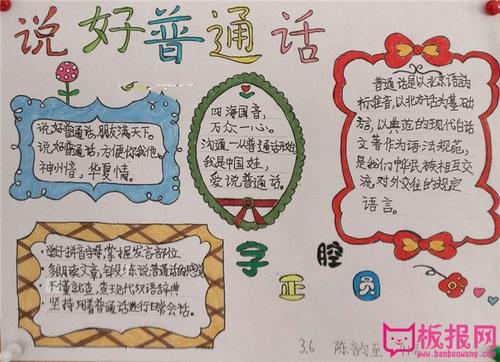 说好普通话
说好普通话,朋友满天下。
说好普通话,方便你我他。
神州情,华夏情。
四海国音,
万众一心。
沟通一以普通话开始
我是中国娃,
爱说普通话。
普通话是以北京语音
标准音,以北方话为基础
方言,以典范的现代白话
文著作为语法规范,
是我们中华民族相互交
流,对外交往的规定
语言。
·学好拼音字母,掌握发音部位
·多朗读文章,
·不懂就查,查现代汉语辞典
·坚持用普通话进行日常会话。
字正腔员
3.6 陈韵至
板报网
www.banbaowang.com